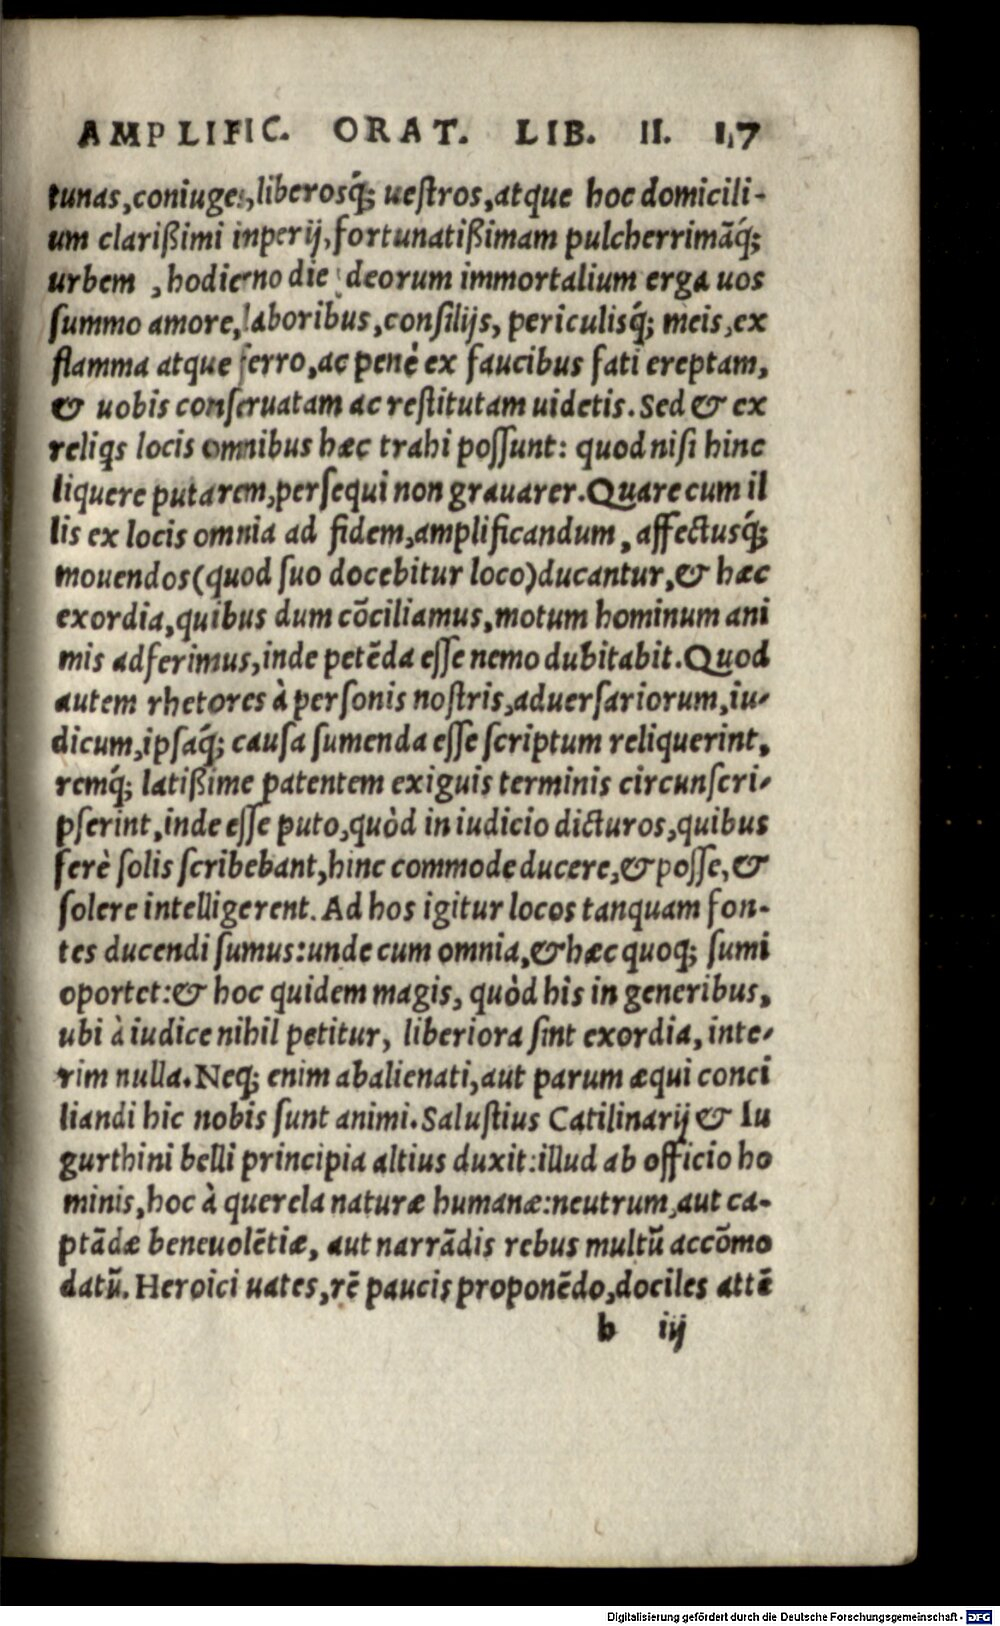 AMPLIFIC. ORAT. LIB. II. 17
tunas, coniuges, liberosq́; ueſtros, atque hoc domicili-
um clarißimi inperij, fortunatißimam pulcherrimãq́;
urbem , hodierno die deorum immortalium erga uos
ſummo amore, laboribus, conſilijs, periculisq́; meis, ex
flamma atque ferro, ac penè ex faucibus fati ereptam,
& uobis conſeruatam ac reſtitutam uidetis. Sed & ex
reliqs locis omnibus hæc trahi poſſunt: quod niſi hinc
liquere putarem, perſequi non grauarer. Quare cum il
lis ex locis omnia ad fidem, amplificandum, affectusq́;
mouendos (quod ſuo docebitur loco) ducantur, & hæc
exordia, quibus dum cõciliamus, motum hominum ani
mis adferimus, inde petẽda eſſe nemo dubitabit. Quod
autem rhetores à perſonis noſtris, aduerſariorum, iu-
dicum, ipſaq́; cauſa ſumenda eſſe ſcriptum reliquerint,
remq́; latißime patentem exiguis terminis circunſcri-
pſerint, inde eſſe puto, quòd in iudicio dicturos, quibus
ferè ſolis ſcribebant, hinc commode ducere, & poſſe, &
ſolere intelligerent. Ad hos igitur locos tanquam fon-
tes ducendi ſumus: unde cum omnia, & hæc quoq; ſumi
oportet: & hoc quidem magis, quòd his in generibus,
ubi à iudice nihil petitur, liberiora ſint exordia, inte-
rim nulla. Neq; enim abalienati, aut parum æqui conci
liandi hic nobis ſunt animi. Saluſtius Catilinarij & Iu
gurthini belli principia altius duxit: illud ab officio ho
minis, hoc à querela naturæ humanæ: neutrum, aut ca-
ptãdæ beneuolẽtiæ, aut narrãdis rebus multũ accõmo
datũ. Heroici uates, rẽ paucis proponẽdo, dociles attẽ
b iij
Digitalisierung gefördert durch die Deutsche Forschungsgemeinschaft - DFG